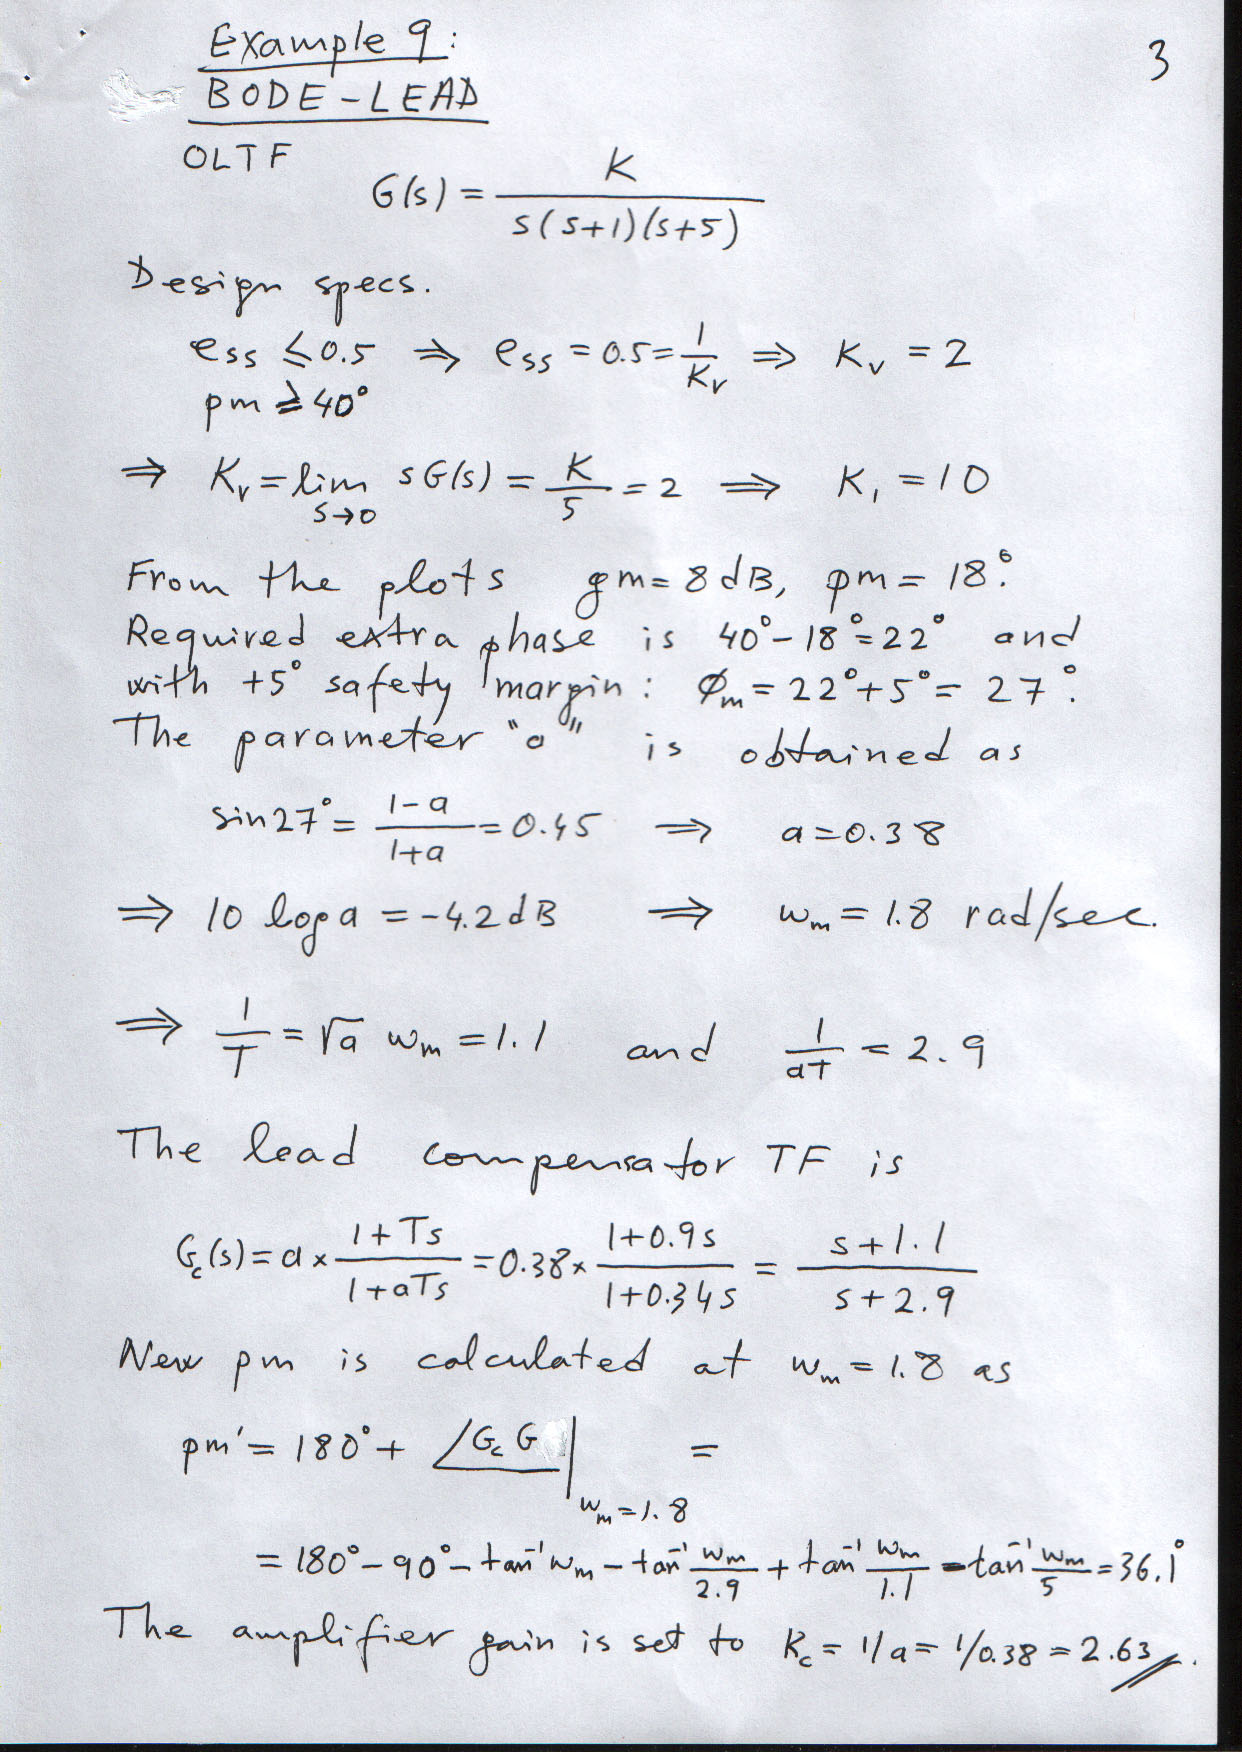 3
Example 9:
BODE-LEAD
OLTF
G(s) = K / s(s+1)(s+5)
Design specs.
ess ≤ 0.5 ⇒ ess = 0.5 = 1/Kv ⇒ Kv = 2
pm ≥ 40°
⇒ Kv = lim s→0 sG(s) = K/5 = 2 ⇒ K1 = 10
From the plots gm = 8 dB, pm = 18°.
Required extra phase is 40° - 18° = 22° and
with +5° safety margin: Øm = 22° + 5° = 27°.
The parameter "a" is obtained as
sin27° = 1-a / 1+a = 0.45 ⇒ a = 0.38
⇒ 10 log a = -4.2 dB ⇒ wm = 1.8 rad/sec.
⇒ 1/T = √a wm = 1.1 and 1/aT = 2.9
The lead compensator TF is
Gc(s) = a × 1+Ts / 1+aTs = 0.38 × 1+0.9s / 1+0.34s = s+1.1 / s+2.9
New pm is calculated at wm = 1.8 as
pm' = 180° + ∠Gc G | wm = 1.8 =
= 180° - 90° - tan⁻¹ wm - tan⁻¹ wm/2.9 + tan⁻¹ wm/1.1 - tan⁻¹ wm/5 = 36.1°
The amplifier gain is set to Kc = 1/a = 1/0.38 = 2.63.